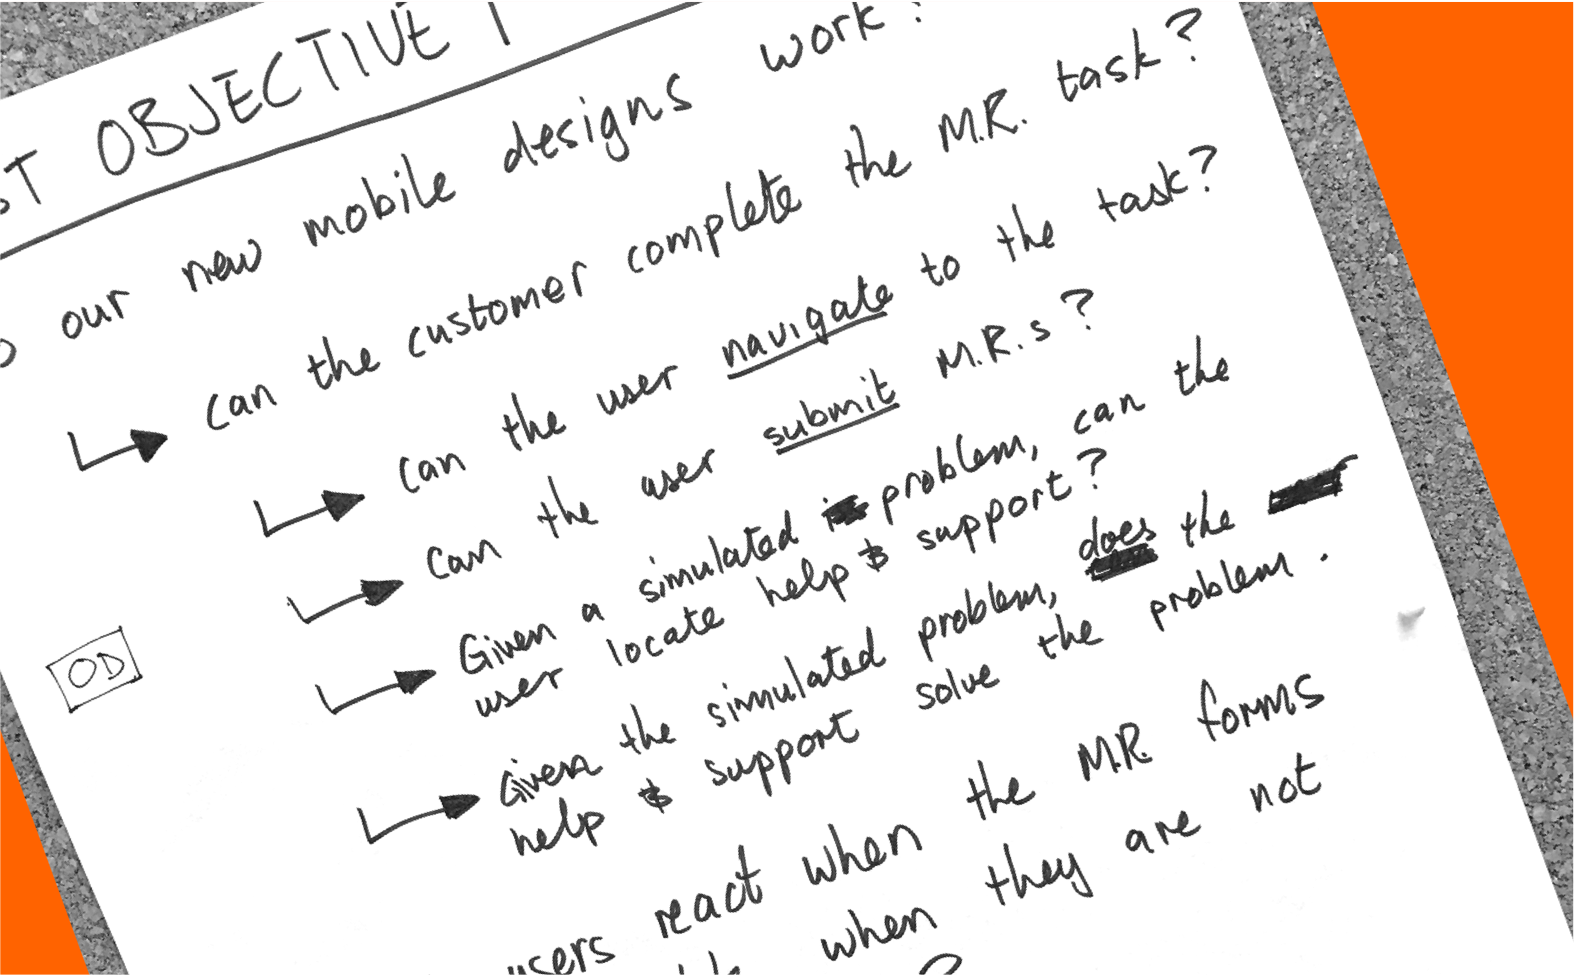 OBJECTIVE
our new mobile designs work?
can the customer complete the M.R. task?
Can the user navigate to the task?
Can the user submit M.R.s?
Given a simulated problem, can the
user locate help & support?
Given the simulated problem, does the
help & support solve the problem.
OD
users react when the M.R. forms
when they are not